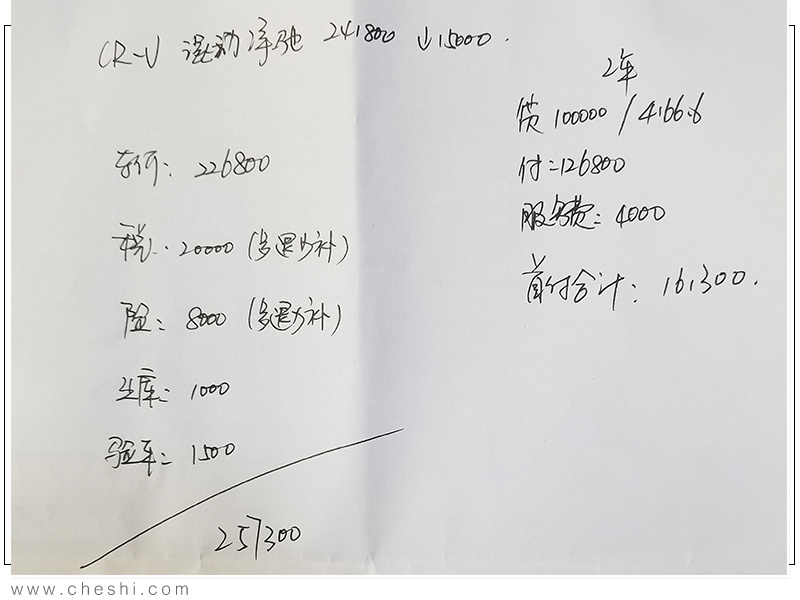 CR-V 混动净驰 241800 ↓15000.
车价: 226800
税: 20000 (多退少补)
险: 8000 (多退少补)
出库: 1000
验车: 1500
257300
2年
贷 100000 / 4166.6
付: 126800
服务费: 4000
首付合计: 161300.
www.cheshi.com